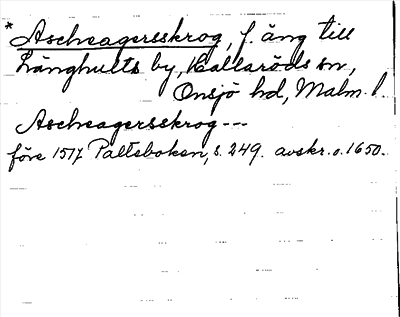 * Ascheagersskrog, f. äng till
Länghults by, Hallaröds sn,
Onsjö hd, Malm. l.
Ascheagersskrog---
före 1517 Palteboken, s. 249. avskr. o. 1650.